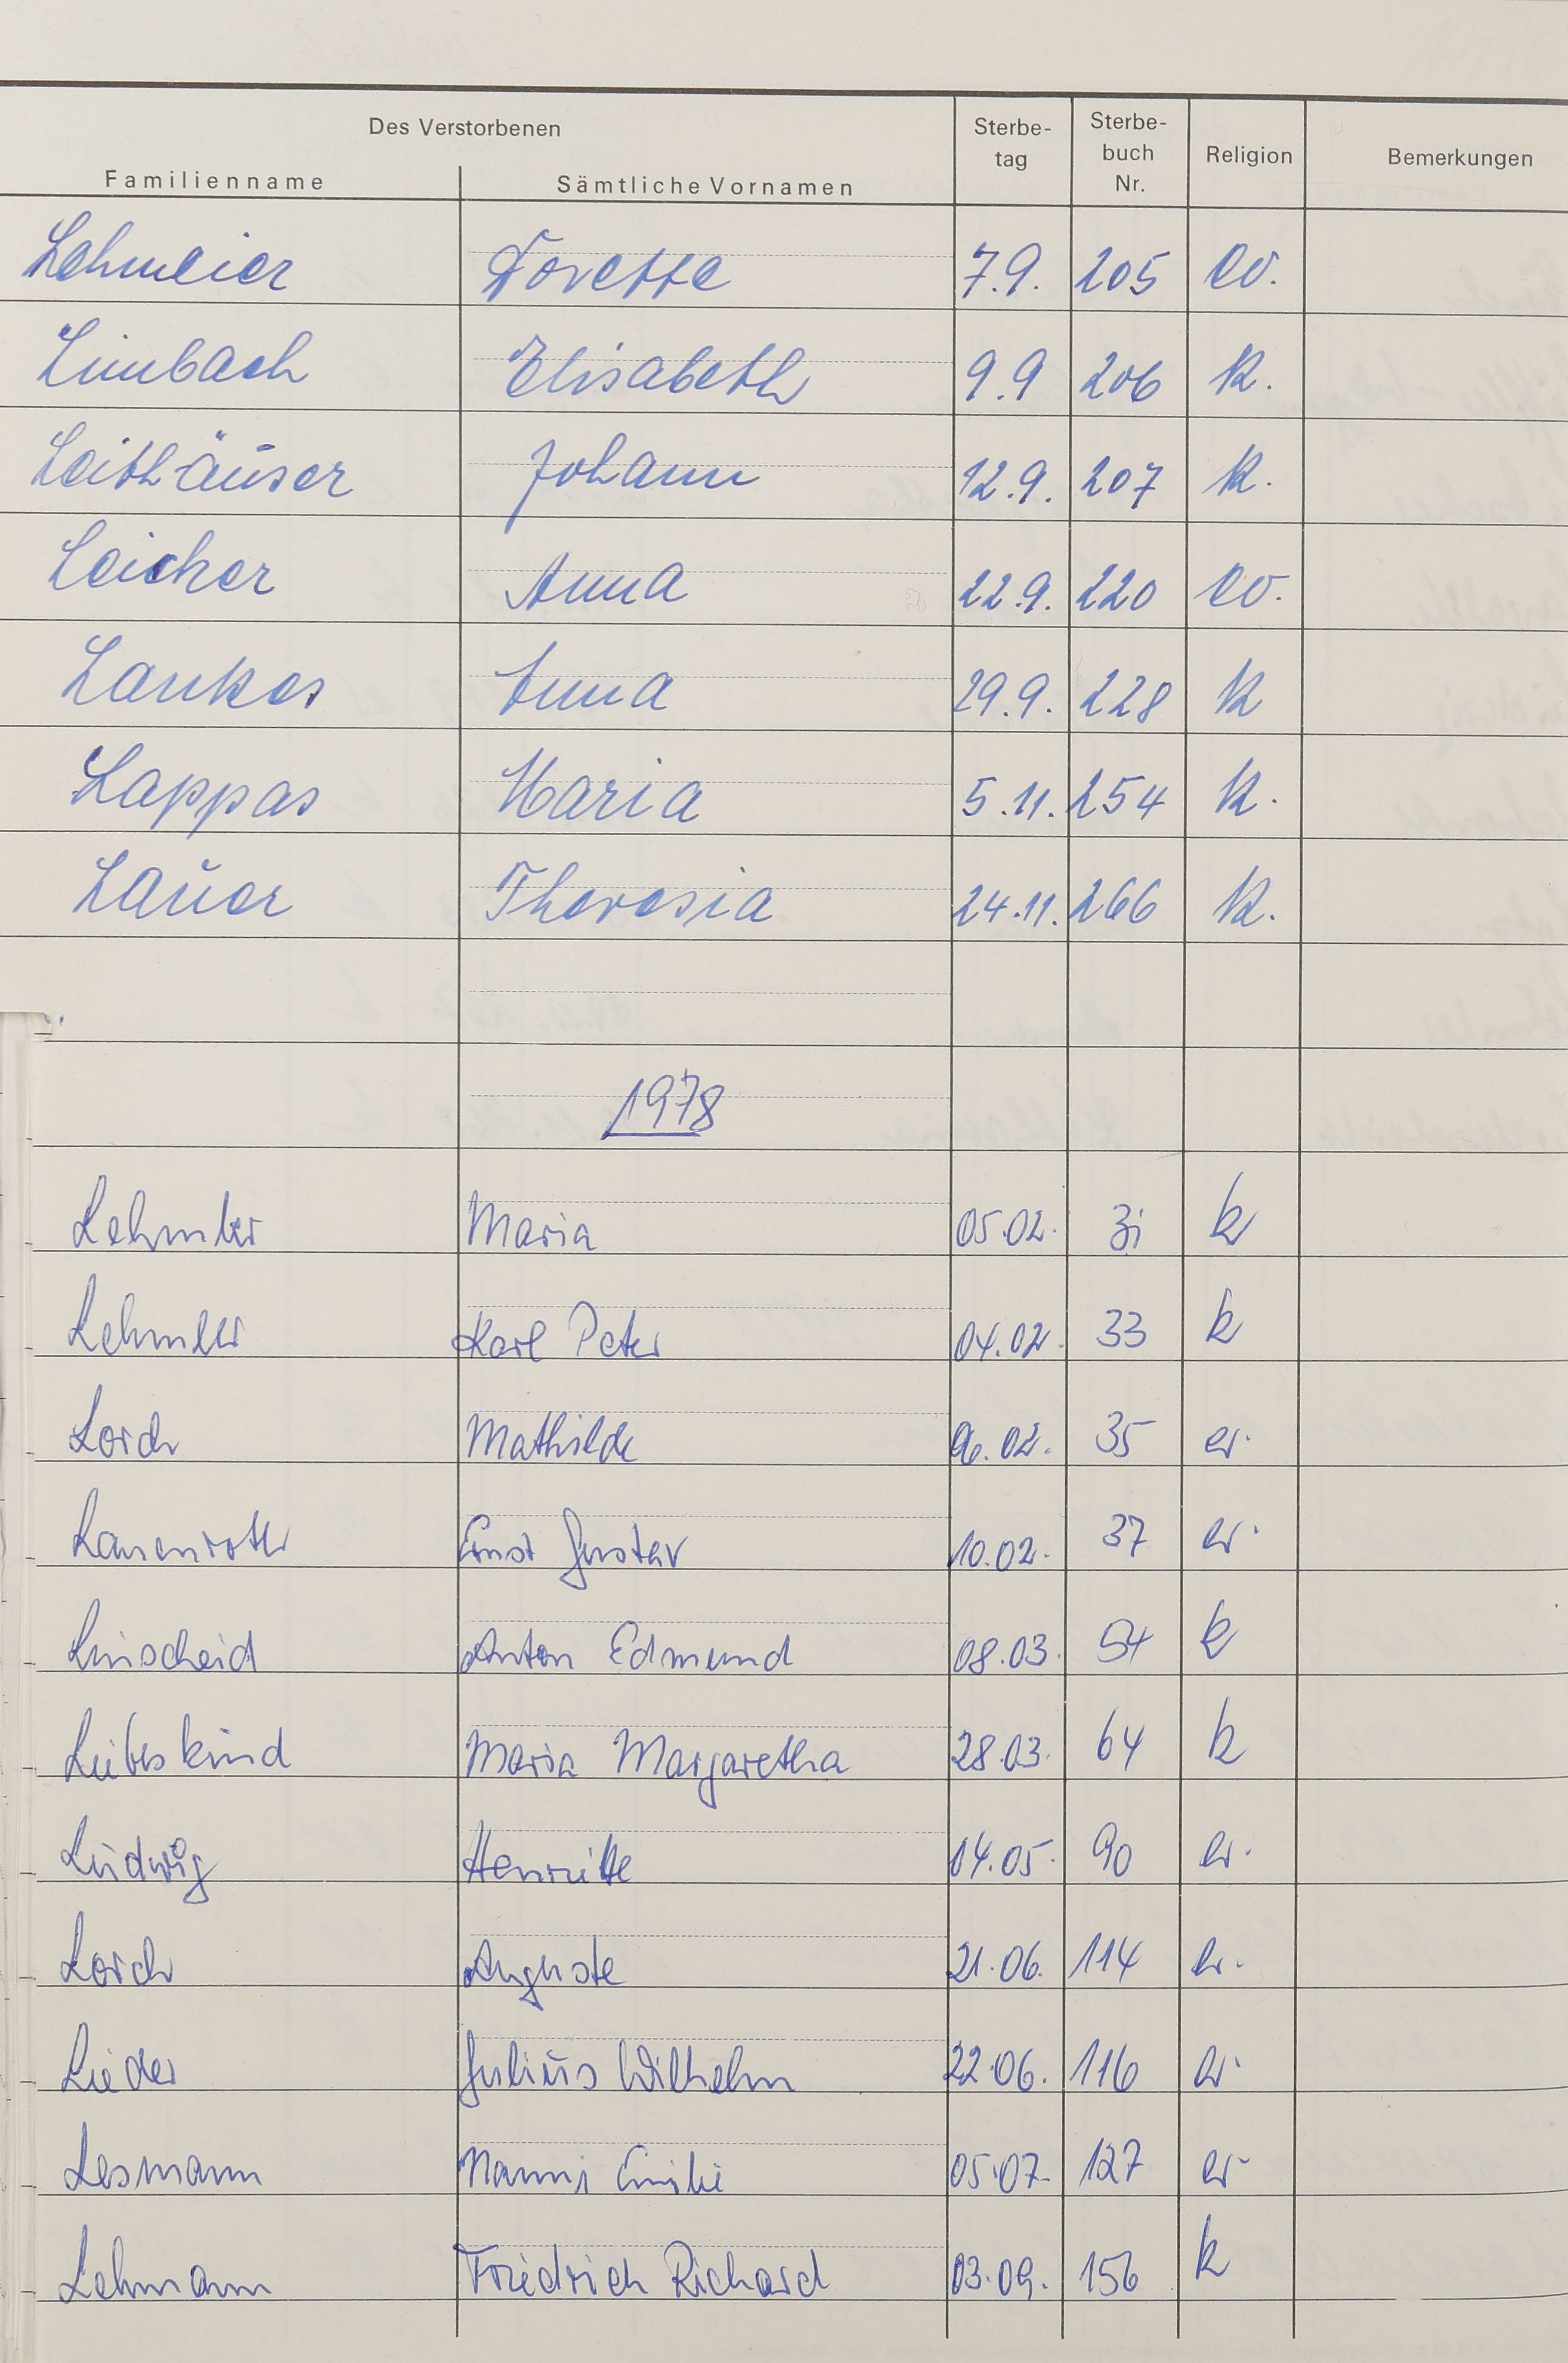 Des Verstorbenen
Familienname Sämtliche Vornamen Sterbe-tag Sterbe-buch Nr. Religion Bemerkungen
Lehmeier Dorette 7.9. 205 ev.
Limbach Elisabeth 9.9 206 k.
Leithäuser Johann 12.9. 207 k.
Leicher Anna 22.9. 220 ev.
Laukes Anna 29.9. 228 k
Lappas Maria 5.11. 254 k.
Lauer Theresia 24.11. 266 k.
1978
Lehmler Maria 05.02. 31 k
Lehmler Karl Peter 04.02. 33 k
Lorch Mathilde 06.02. 35 ev.
Lauenroth Ernst Gustav 10.02. 37 ev.
Linscheid Anton Edmund 08.03. 54 k
Liebeskind Maria Margaretha 28.03. 64 k
Ludwig Henriette 14.05. 90 ev.
Lorch Auguste 21.06. 114 ev.
Lieder Julius Wilhelm 22.06. 116 ev.
Lesmann Nanni Emilie 05.07. 127 ev.
Lehmann Friedrich Richard 03.09. 156 k